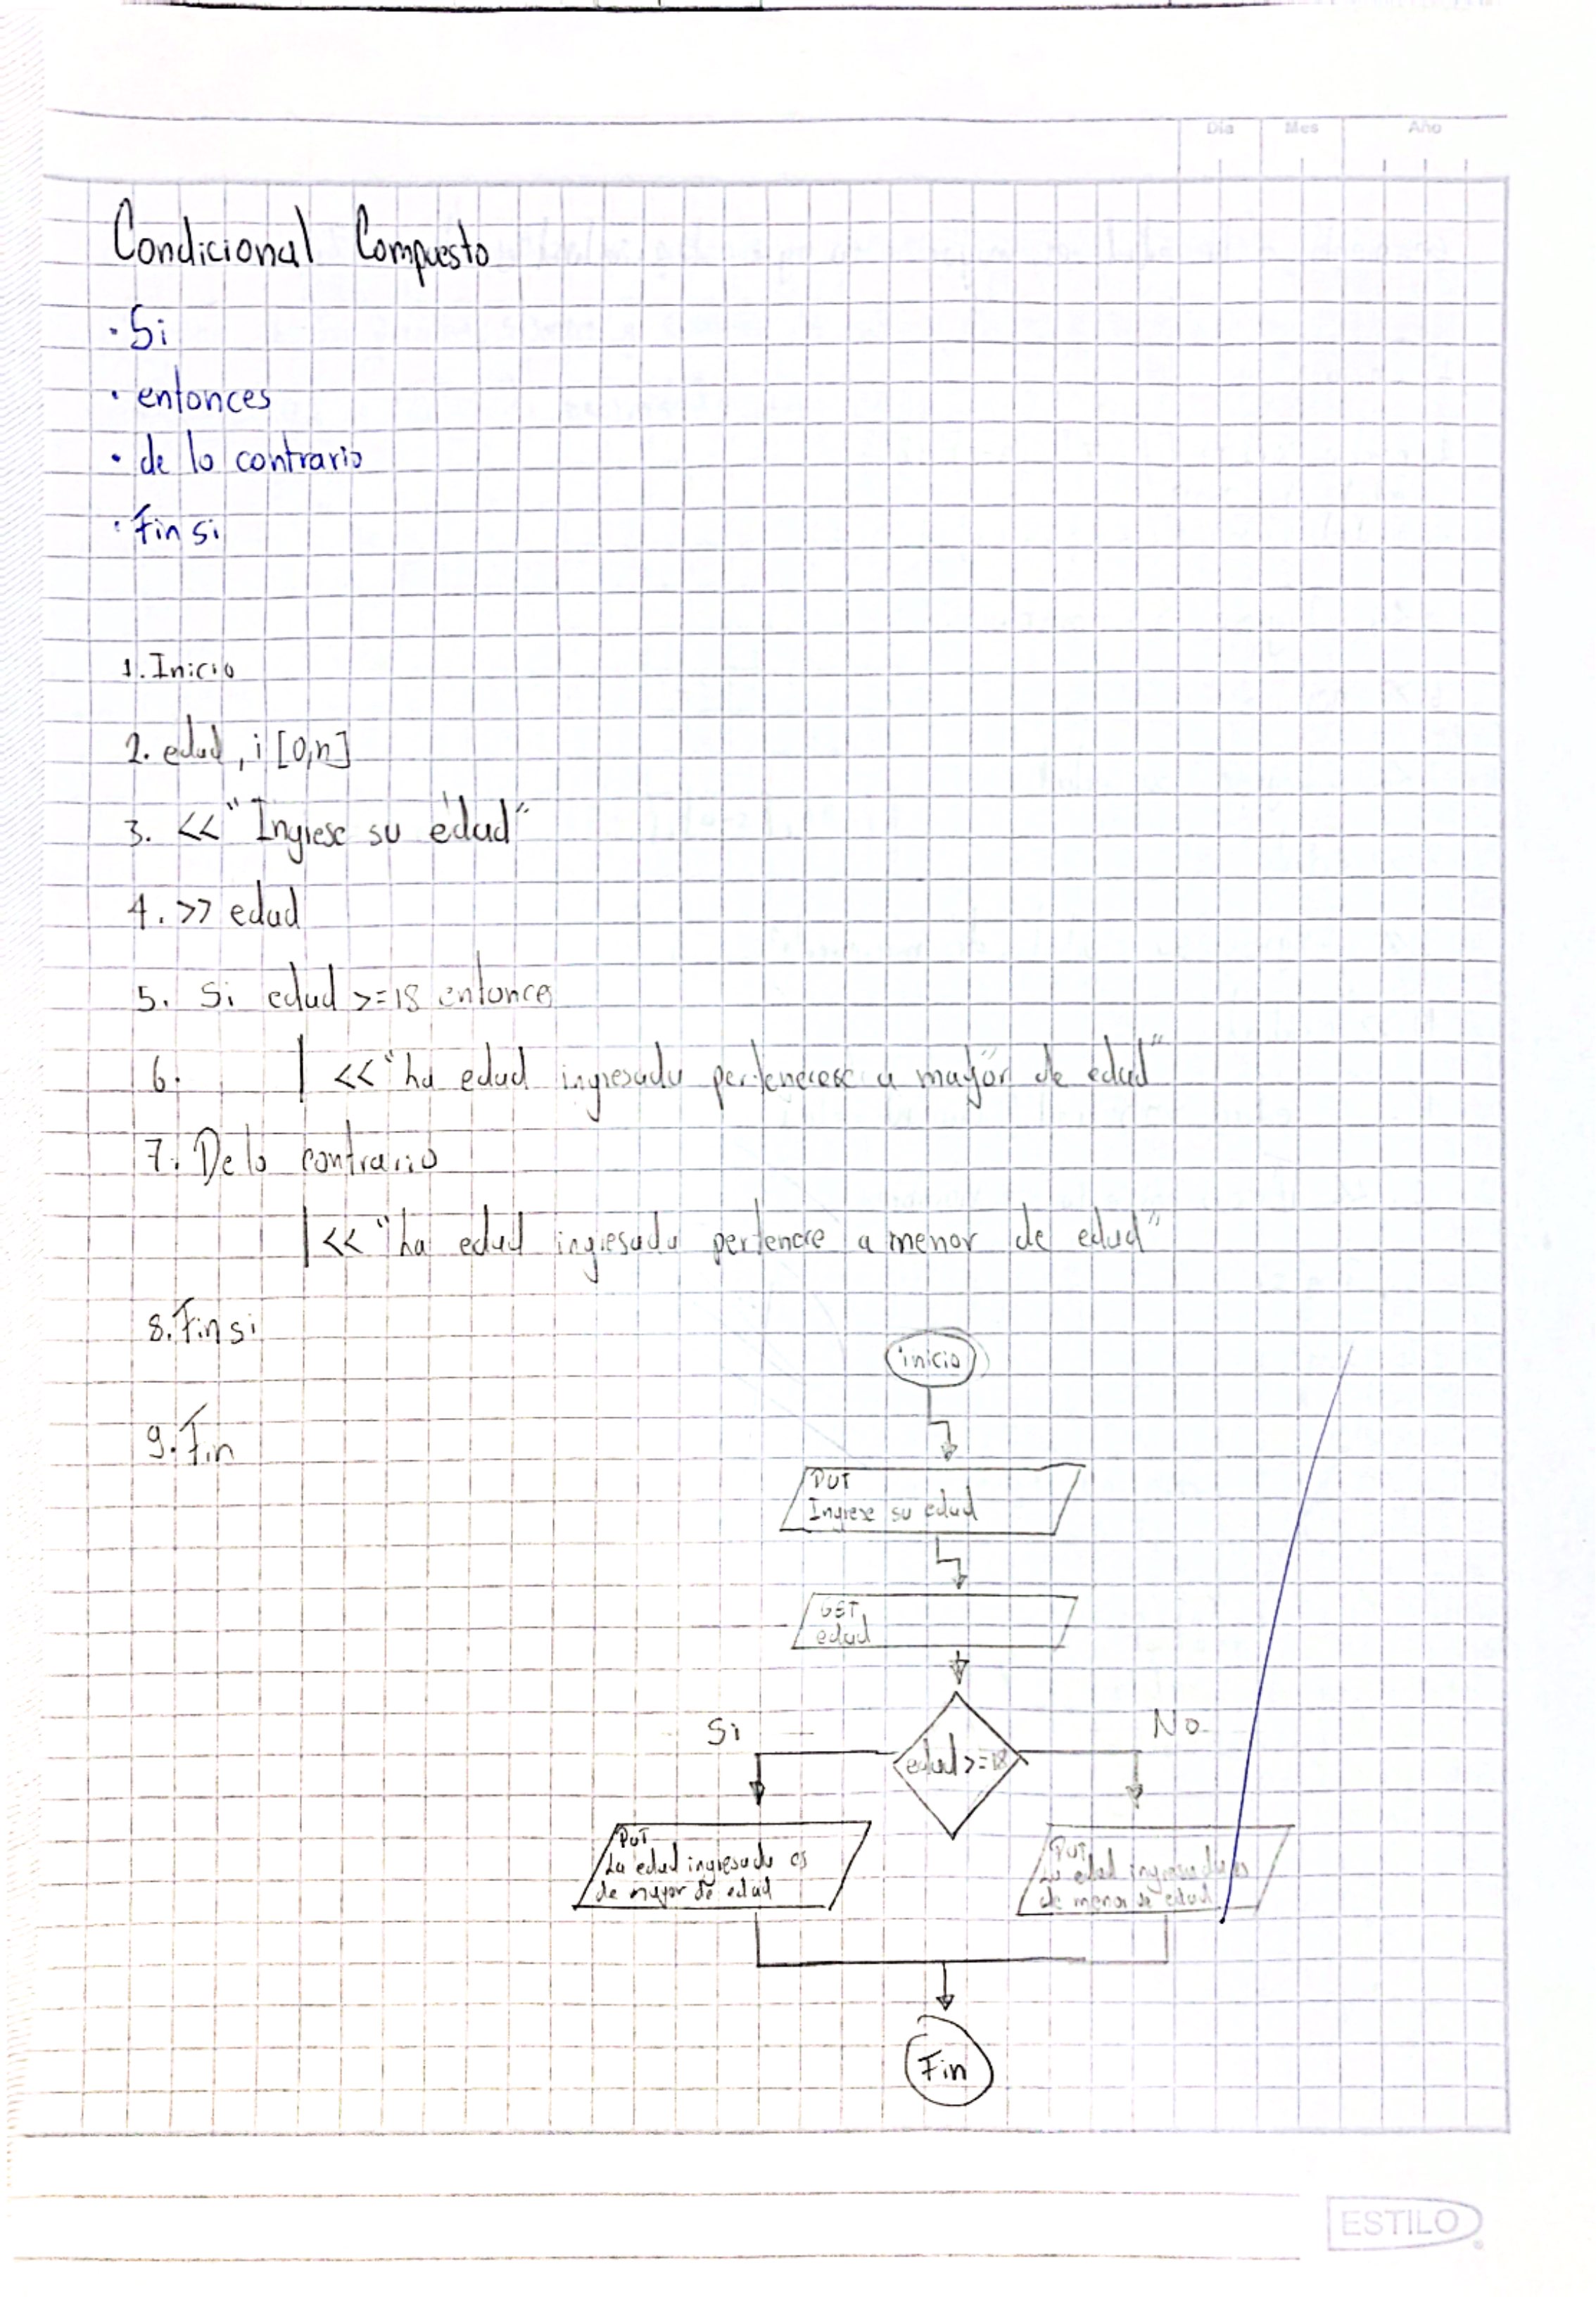 Día Mes Año
Condicional Compuesto
· Si
· entonces
· de lo contrario
· Fin si
1. Inicio
2. edad, i [0,n]
3. << "Ingrese su edad"
4. >> edad
5. Si edad >=18 entonces
6. | << "La edad ingresada pertenecese a mayor de edad"
7. De lo contrario
| << "La edad ingresada pertenece a menor de edad"
8. Fin si
9. Fin
inicio
PUT
Ingrese su edad
GET
edad
Si
No
edad >=18
PUT
La edad ingresada es
de mayor de edad
PUT
La edad ingresada es
de menor de edad
Fin
ESTILO